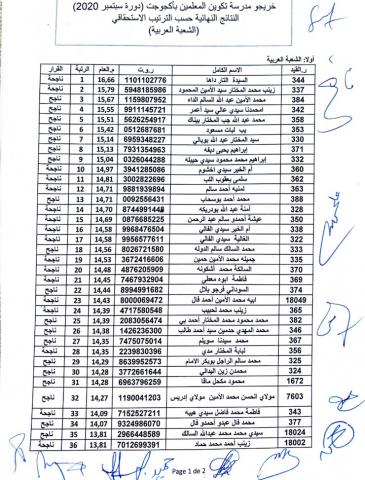 خريجو مدرسة تكوين المعلمين بأكجوجت (دورة سبتمبر 2020)
النتائج النهائية حسب الترتيب الاستحقاقي
(الشعبة العربية)
أولا: الشعبة العربية
ر.القيد الاسم الكامل ر.و.ت م.العام الرتبة القرار
344 السيدة الثار داها 1101102776 16,66 1 ناجحة
337 زينب محمد المختار سيد الأمين المحمود 5948185986 15,79 2 ناجحة
384 محمد الأمين عبد الله السالم الداه 1159807952 15,67 3 ناجح
342 امحمدنا سيدي عالي سيد أعمر 9911145721 15,55 4 ناجح
358 محمد عبد الله جب المختار ببناك 5626254917 15,51 5 ناجح
353 يب لبات مسعود 0512687681 15,42 6 ناجح
330 سيد المختار عبد الله بوبالي 0959348227 15,14 7 ناجح
371 إبراهيم يحيى ديقه 7931354963 15,09 8 ناجح
332 إبراهيم محمد محمود سيدي حبيله 0326044288 15,04 9 ناجح
362 أم الخير سيدي أخشوم 3941285086 14,97 10 ناجحة
360 سلمى يعقوب اللب 3002822696 14,81 11 ناجحة
363 لمنيه أحمد سالم 9881939894 14,71 12 ناجحة
388 محمد أحمد بوسحاب 0092556431 14,71 13 ناجح
328 آمنة عبد الله بودريكه 8744991448 14,70 14 ناجحة
350 عيشة أحمدو سالم عبد الرحمن 0876685225 14,69 15 ناجحة
345 أم الخير سيدي الفالي 9968476504 14,58 16 ناجحة
347 الغالية سيدي الفالي 9956577611 14,58 17 ناجحة
333 محمد السالك سالم الدوله 8026721580 14,56 18 ناجح
335 جميله محمد الأمين حمين 3672416606 14,53 19 ناجحة
370 السالكة محمد أشكونه 4876205909 14,48 20 ناجحة
354 فاطمة ابوه معطي 7467932904 14,45 21 ناجحة
374 السوداني فرجو بلال 8994991682 14,44 22 ناجح
18049 ابيه محمد الأمين أحمد قال 8000069472 14,43 23 ناجحة
365 زينب محمد لحبيب 4717580548 14,39 24 ناجحة
382 محمد محمود محمد المختار أحمد بي 2083056474 14,39 25 ناجح
346 محمد المهدي حدمين سيد أحمد طالب 1426236300 14,38 26 ناجح
367 محمد سيدنا سويلم 7475075014 14,35 27 ناجح
356 لبابة المختار مدي 2239830396 14,35 28 ناجحة
325 محمد سالم الراجل بوبكر الامام 8639952573 14,29 29 ناجح
324 محمدن زين البدالي 3772661644 14,28 30 ناجح
1672 محمود مكحل ماقا 6963796259 14,28 31 ناجح
7603 مولاي الحسن محمد الأمين مولاي إدريس 1190041203 14,27 32 ناجح
343 فاطمة محمد فاضل سيدي هيبه 7152527211 14,09 33 ناجحة
377 محمد قال عبدو أحمدو قال 9324986070 14,07 34 ناجح
18024 سيدي محمد محمد عبدالله السالك 2966448589 13,81 35 ناجح
18002 زينب أحمد محمد حماد 7012699391 13,81 36 ناجحة
Page 1 de 2